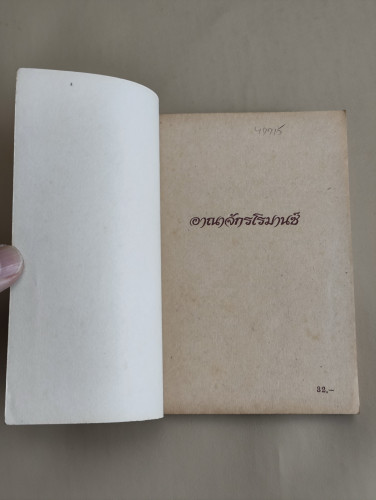 อาณาจักรโรมานซ์
32.-